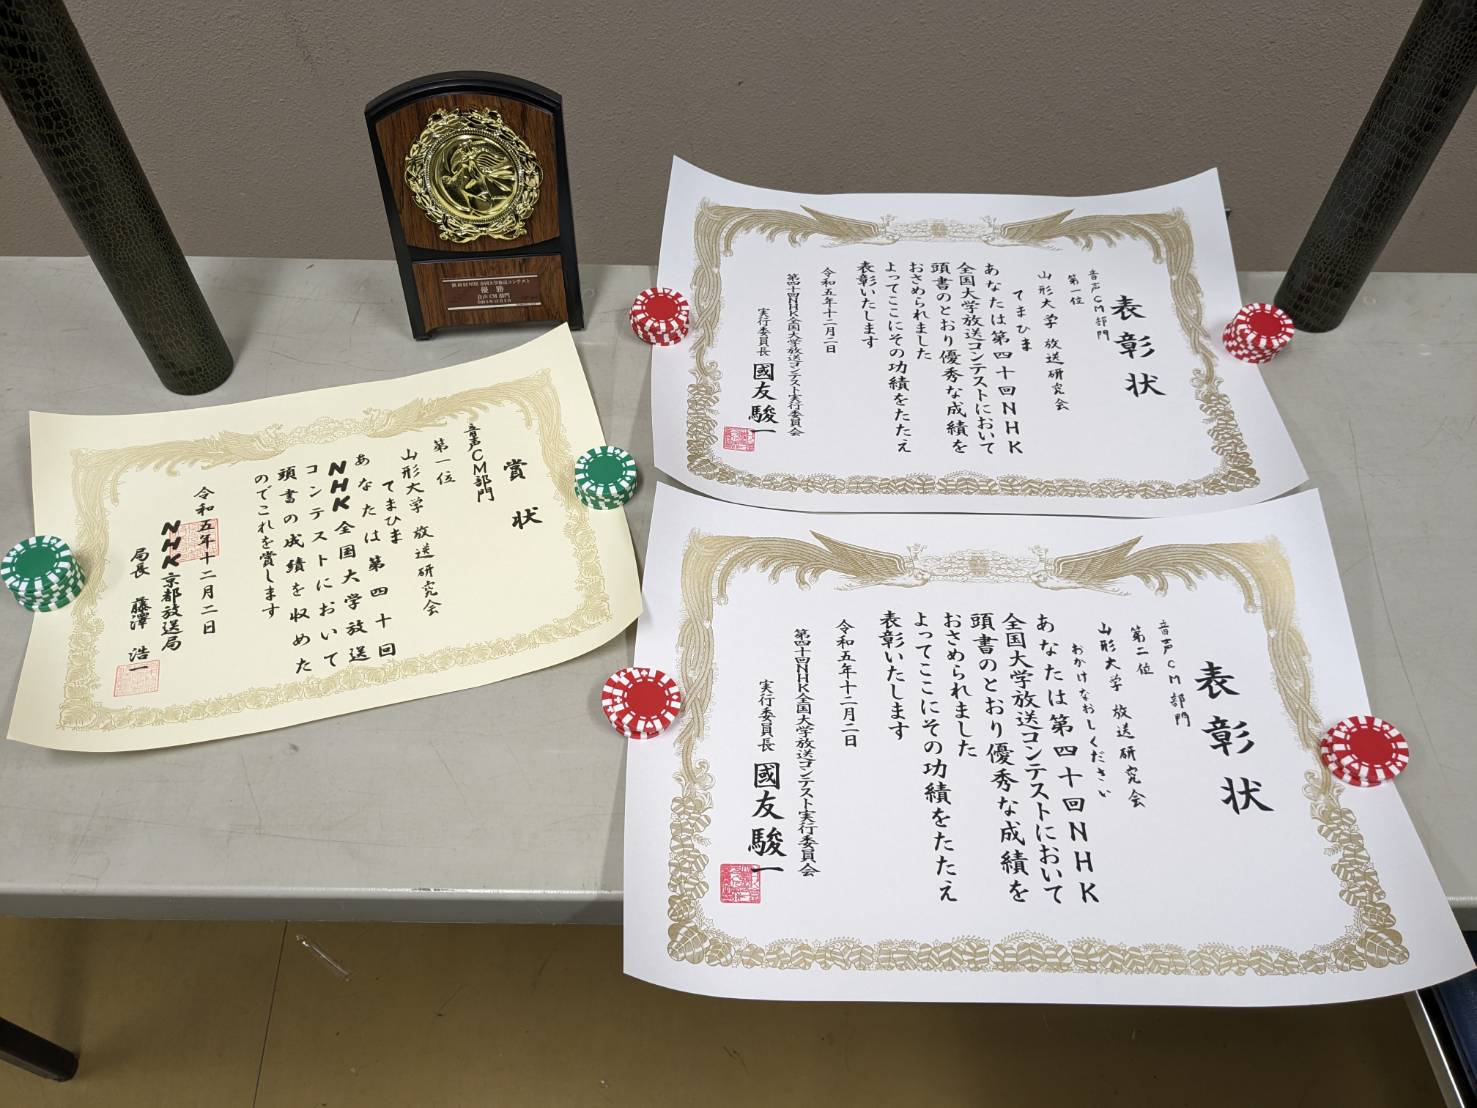 優勝
音声CM部門
表彰状
音声CM部門
第一位
山形大学 放送研究会
てまひま
あなたは第四十回NHK
全国大学放送コンテストにおいて
頭書のとおり優秀な成績を
おさめられました
よってここにその功績をたたえ
表彰いたします
令和五年十二月二日
第四十回NHK全国大学放送コンテスト実行委員会
実行委員長 國友駿一
賞状
音声CM部門
第一位
山形大学 放送研究会
てまひま
あなたは第四十回
NHK全国大学放送
コンテストにおいて
頭書の成績を収めた
のでこれを賞します
令和五年十二月二日
NHK京都放送局
局長 藤澤浩一
表彰状
音声CM部門
第二位
山形大学 放送研究会
おかけなおしください
あなたは第四十回NHK
全国大学放送コンテストにおいて
頭書のとおり優秀な成績を
おさめられました
よってここにその功績をたたえ
表彰いたします
令和五年十二月二日
第四十回NHK全国大学放送コンテスト実行委員会
実行委員長 國友駿一